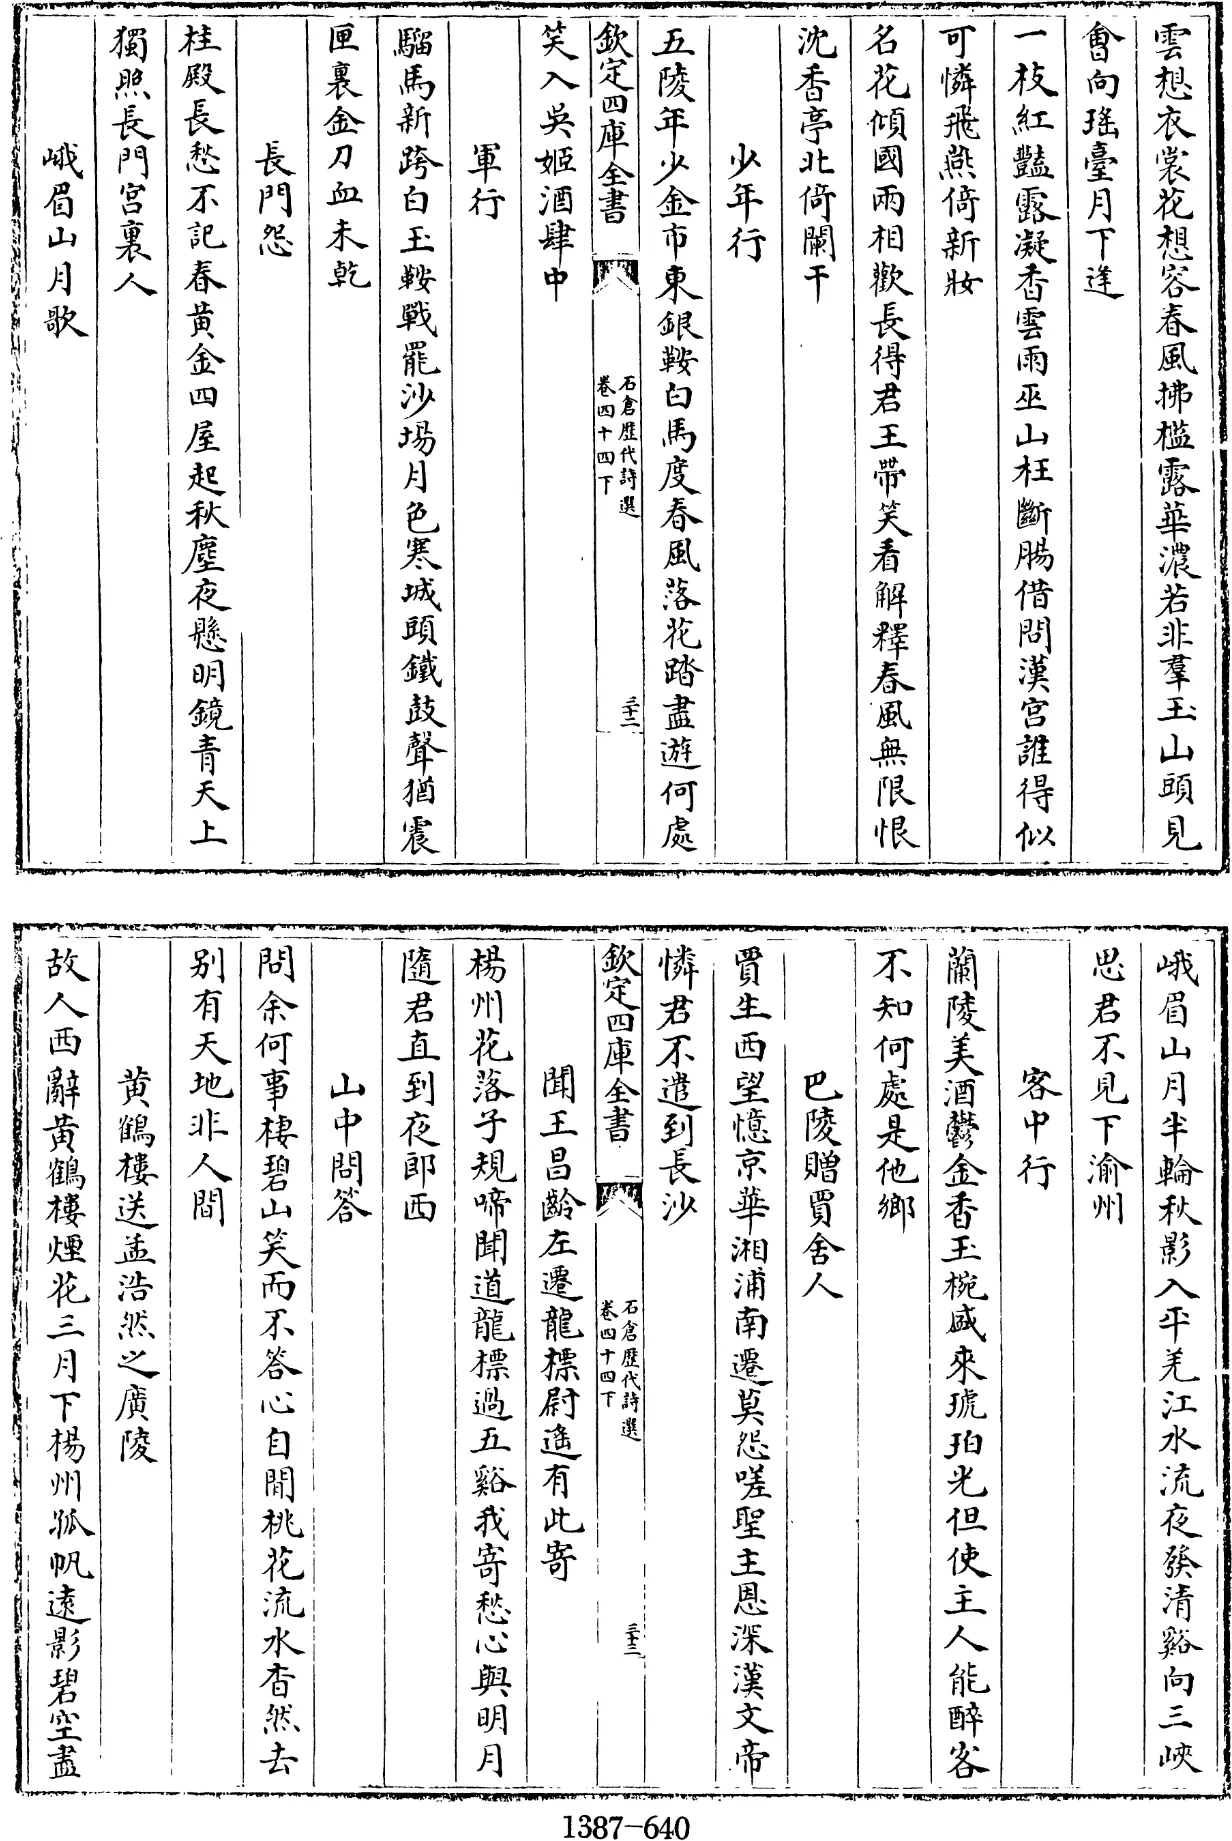 雲想衣裳花想容春風拂檻露華濃若非羣玉山頭見
會向瑤臺月下逢
一枝紅豔露凝香雲雨巫山枉斷腸借問漢宮誰得似
可憐飛燕倚新妝
名花傾國兩相歡長得君王帶笑看解釋春風無限恨
沈香亭北倚闌干
少年行
五陵年少金市東銀鞍白馬度春風落花踏盡遊何處
欽定四庫全書
石倉歷代詩選
卷四十四下
三十二
笑入吳姬酒肆中
軍行
騮馬新跨白玉鞍戰罷沙場月色寒城頭鐵鼓聲猶震
匣裏金刀血未乾
長門怨
桂殿長愁不記春黃金四屋起秋塵夜懸明鏡青天上
獨照長門宮裏人
峨眉山月歌
峨眉山月半輪秋影入平羌江水流夜發清谿向三峽
思君不見下渝州
客中行
蘭陵美酒鬱金香玉椀盛來琥珀光但使主人能醉客
不知何處是他鄉
巴陵贈賈舍人
賈生西望憶京華湘浦南遷莫怨嗟聖主恩深漢文帝
憐君不遣到長沙
欽定四庫全書
石倉歷代詩選
卷四十四下
三十三
聞王昌齡左遷龍標尉遙有此寄
楊州花落子規啼聞道龍標過五谿我寄愁心與明月
隨君直到夜郎西
山中問答
問余何事棲碧山笑而不答心自閒桃花流水杳然去
別有天地非人間
黃鶴樓送孟浩然之廣陵
故人西辭黃鶴樓煙花三月下楊州孤帆遠影碧空盡
1387-640